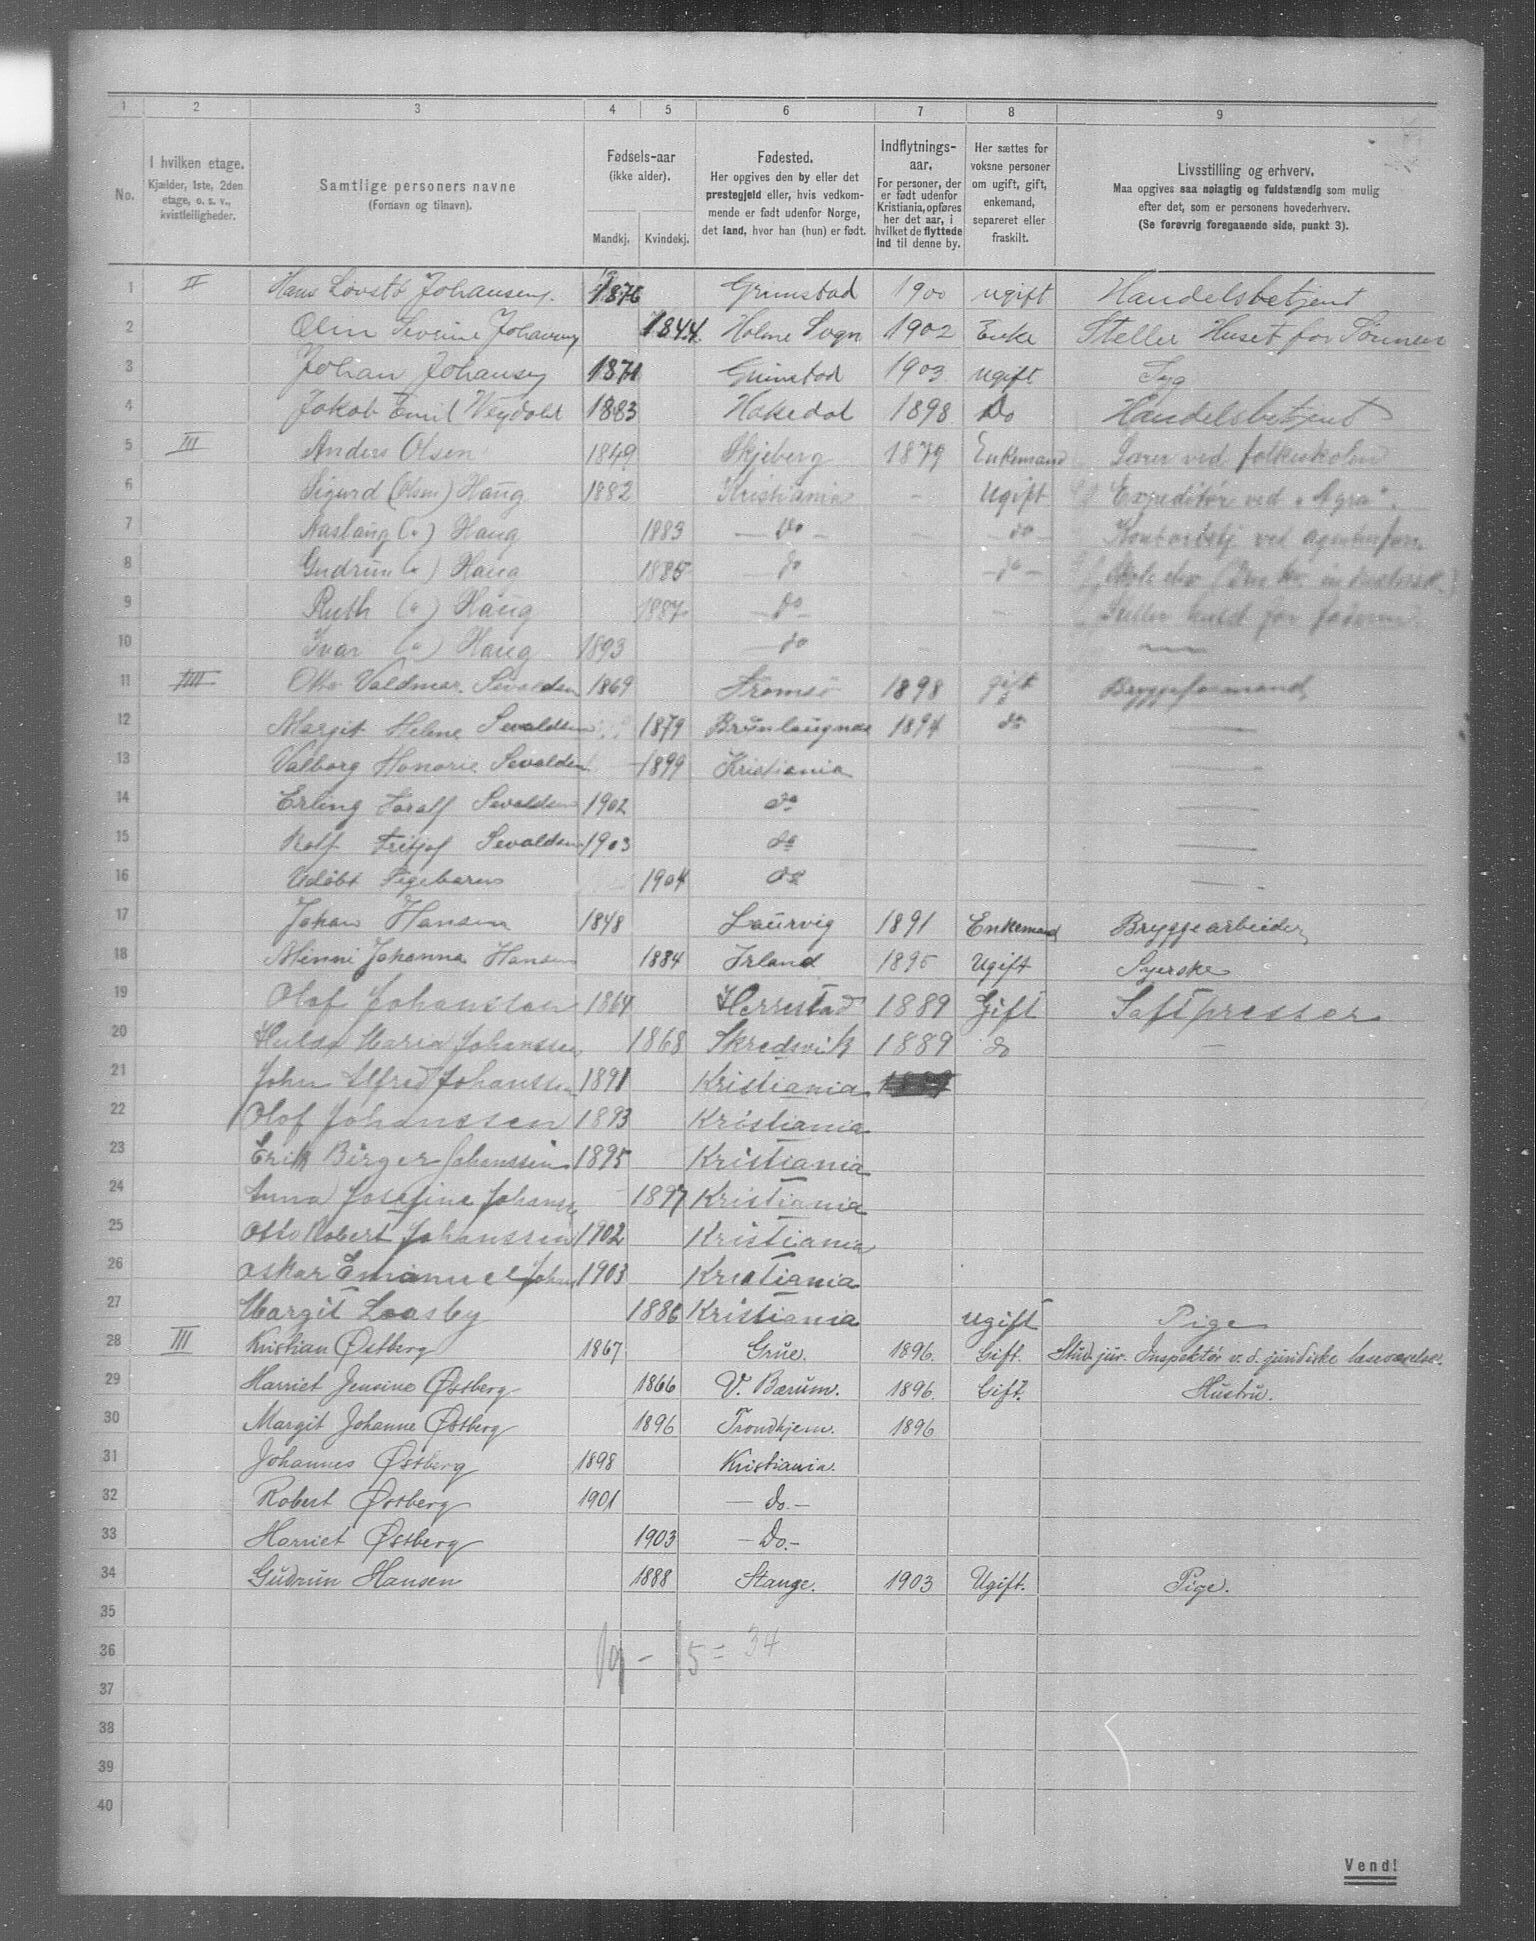 1 2 3 4 5 6 7 8 9
No.
I hvilken etage.
Kjælder, 1ste, 2den
etage, o. s. v.,
kvistleiligheder.
Samtlige personers navne
(Fornavn og tilnavn).
Fødsels-aar
(ikke alder).
Mandkj. Kvindekj.
Fødested.
Her opgives den by eller det
prestegjeld eller, hvis vedkom-
mende er født udenfor Norge,
det land, hvor han (hun) er født.
Indflytnings-
aar.
For personer, der
er født udenfor
Kristiania, opføres
her det aar, i
hvilket de flyttede
ind til denne by.
Her sættes for
voksne personer
om ugift, gift,
enkemand,
separeret eller
fraskilt.
Livsstilling og erhverv.
Maa opgives saa nøiagtig og fuldstændig som mulig
efter det, som er personens hovederhverv.
(Se forøvrig foregaaende side, punkt 3).
1 II Hans Lovstø Johansen. 1876 Grimstad 1900 ugift Handelsbetjent
2 Olin Severine Johansen 1844. Holme Sogn 1902 Enke Steller Huset for Sønnen
3 Johan Johansen 1871 Grimstad 1903 ugift Syg
4 Jakob Emil Weydold 1883 Hakedal 1898 Do Handelsbetjent
5 III Anders Olsen 1849 Skjeberg 1879 Enkemand Lærer ved folkeskolen
6 Sigurd (Olsen) Haug 1882 Kristiania - Ugift Expeditør ved "Agra".
7 Aaslaug (") Haug 1883 - Do - - do - Kontorbetj. ved
8 Gudrun (") Haug 1885 - do - do -
9 Ruth (") Haug 1887 - do - Steller huset for faderen
10 Ivar (") Haug 1893 - do
11 IIII Otto Valdmar Sevaldsen 1869 Tromsø 1898 gift Bryggeformand
12 Margit Helene Sevaldsen 1879 Brunlaugnæs 1894 do
13 Valborg Honorie Sevaldsen 1899 Kristiania
14 Erling Toralf Sevaldsen 1902 do
15 Rolf Fritjof Sevaldsen 1903 do
16 Udøbt Pigebarn 1904 do
17 Johan Hansen 1848 Laurvig 1891 Enkemand Bryggearbeider
18 Minni Johanna Hansen 1884 Irland 1895 Ugift Syerske
19 Olof Johansson 1864 Herrestad 1889 Gift Saftpresser
20 Hulda Maria Johanssen 1868 Skredsvik 1889 do -
21 John Alfred Johanssen 1891 Kristiania
22 Olof Johanssen 1893 Kristiania
23 Erik Birger Johanssen 1895 Kristiania
24 Anna Josefine Johanss 1897 Kristiania
25 Otto Robert Johanssen 1902 Kristiania
26 Oskar Emanuel Johan 1903 Kristiania
27 Margit Laasby 1886 Kristiania ugift Pige
28 III Kristian Østberg 1867 Grue. 1896. Gift. Stud. jur. Inspektør v. d. juridiske læseværelse.
29 Harriet Jensine Østberg 1866 V. Bærum. 1896. Gift. Hustru.
30 Margit Johanne Østberg 1896 Trondhjem. 1896
31 Johannes Østberg 1898 Kristiania.
32 Robert Østberg 1901 - Do. -
33 Harriet Østberg 1903 - Do. -
34 Gudrun Hansen 1888 Stange. 1903 Ugift. Pige.
35
36 19 - 15 = 34
37
38
39
40
Vend!